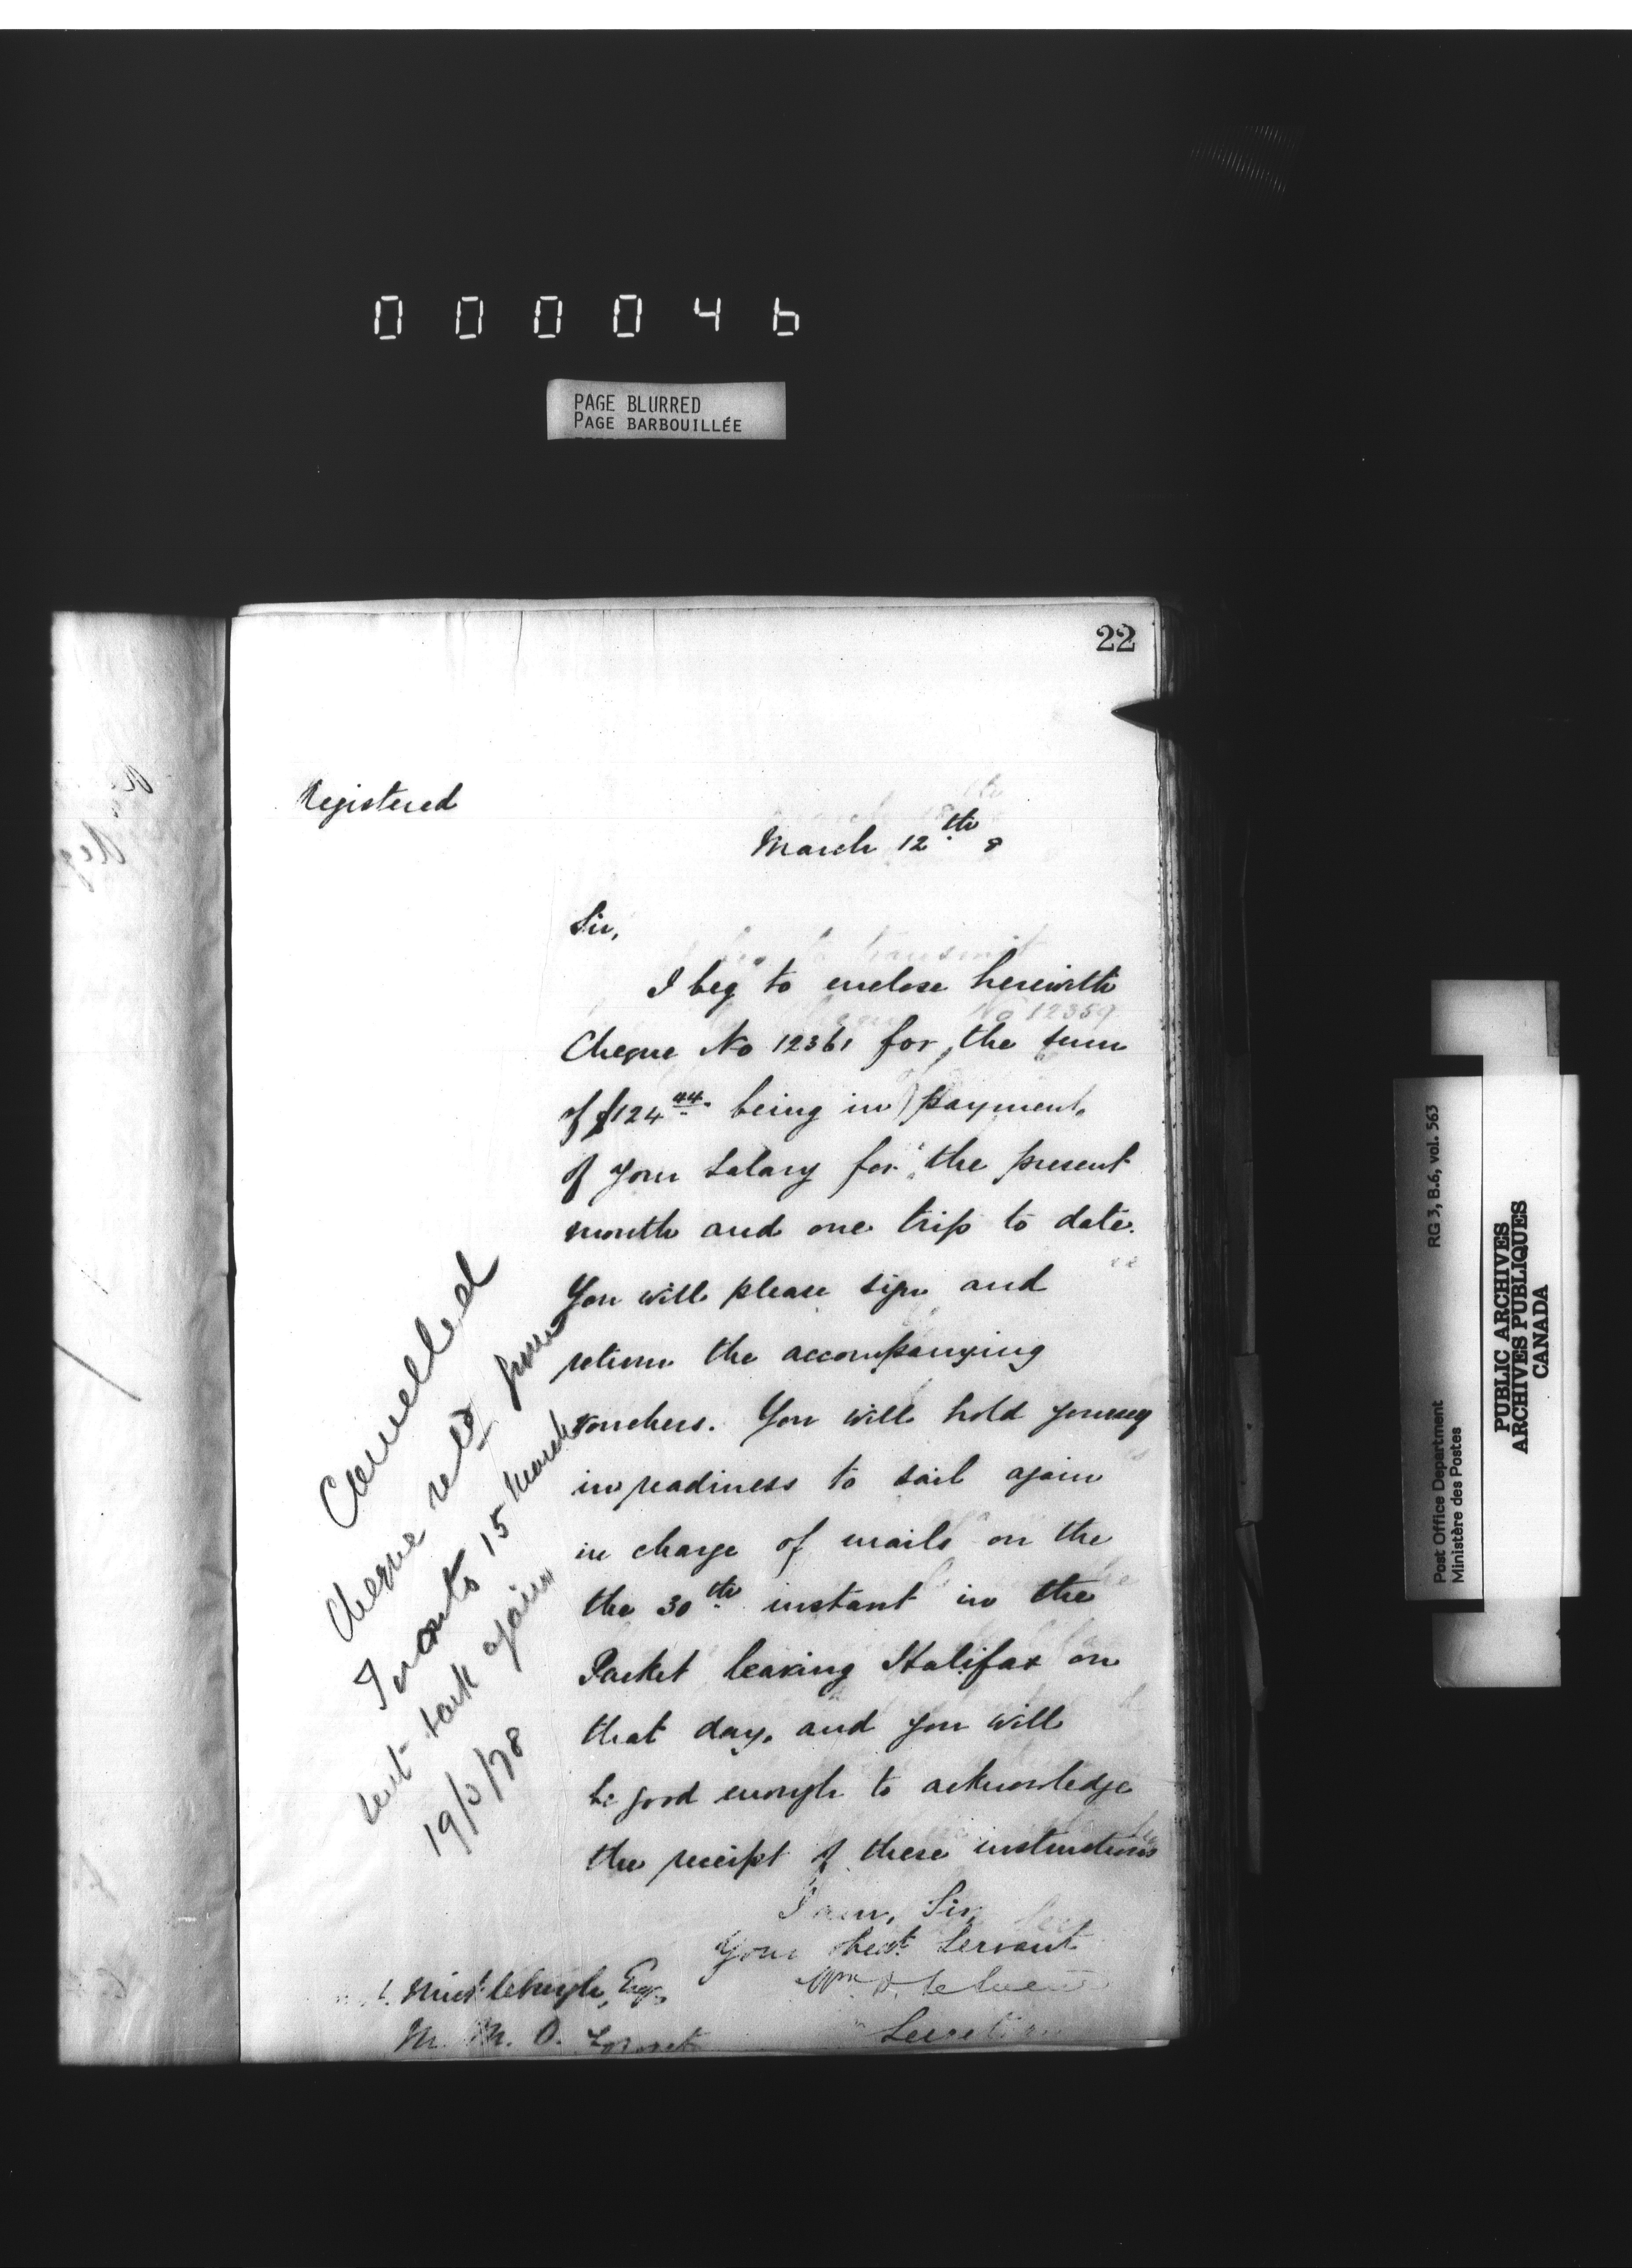 000046
PAGE BLURRED
PAGE BARBOUILLÉE
22
Registered
March 12th 8
Sir,
I beg to enclose herewith
Cheque No 12361 for the sum
of $124 44 being in payment
of your salary for the present
month and one trip to date.
You will please sign and
return the accompanying
vouchers. You will hold yourself
in readiness to sail again
in charge of mails on the
the 30th instant in the
Packet leaving Halifax on
that day, and you will
be good enough to acknowledge
the receipt of these instructions
I am, Sir,
Your obedt Servant
Secretary
Middlehugh, Esq,
M. M. O.
Cancelled
Cheque retd from
Toronto 15 March
sent back again
19/3/78
RG 3, B.6, vol. 563
Post Office Department
Ministère des Postes
PUBLIC ARCHIVES
ARCHIVES PUBLIQUES
CANADA